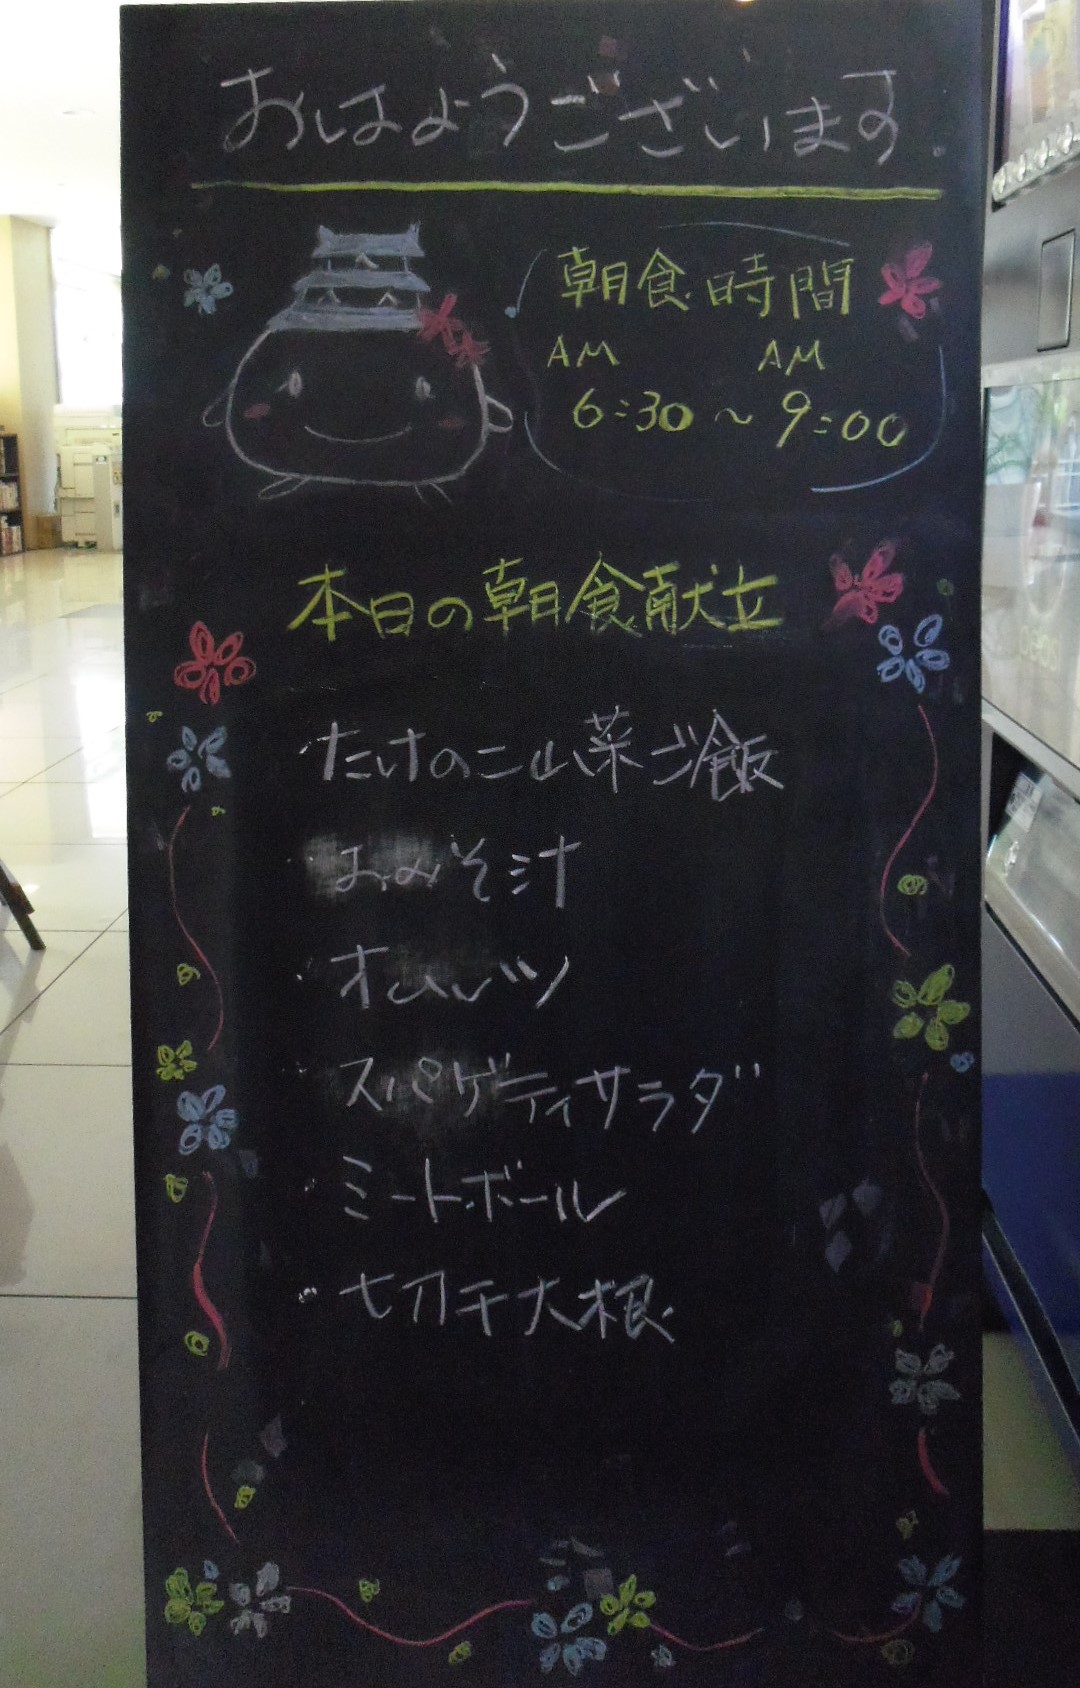 おはようございます.
朝食時間
AM AM
6:30〜9:00
本日の朝食献立
・たけのこ山菜ご飯
・おみそ汁
・オムレツ
・スパゲティサラダ
・ミートボール
・切干大根